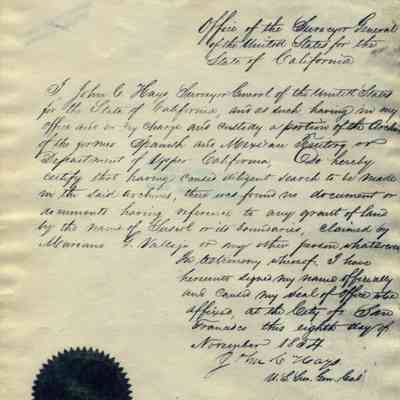 Office of the Surveyor General
of the United States for the
State of California
I John C Hays Surveyor General of the United States
for the State of California, and as such having in my
office and in my charge and custody a portion of the Archives
of the former Spanish and Mexican Territory or
Department of Upper California, Do hereby
certify that having caused diligent search to be made
in the said Archives, there was found no document or
documents having reference to any grant of land
by the name of Suscol or its boundaries, claimed by
Mariano G. Vallejo or any other person whatsoever
In testimony whereof I have
hereunto signed my name officially
and caused my seal of office to be
affixed, at the City of San
Francisco this eighth day of
November 1854
Jno C Hays
U.S. Sur. Gen. Cal